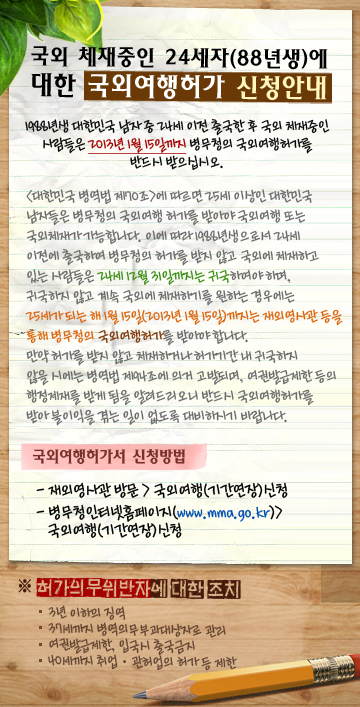 국외 체재중인 24세자(88년생)에
대한 국외여행허가 신청안내
1988년생 대한민국 남자 중 24세 이전 출국한 후 국외 체재중인
사람들은 2013년 1월 15일까지 병무청의 국외여행허가를
반드시 받으십시오.
<대한민국 병역법 제70조>에 따르면 25세 이상인 대한민국
남자들은 병무청의 국외여행 허가를 받아야 국외여행 또는
국외체재가 가능합니다. 이에 따라 1988년생으로서 24세
이전에 출국하여 병무청의 허가를 받지 않고 국외에 체재하고
있는 사람들은 24세 12월 31일까지는 귀국하여야 하며,
귀국하지 않고 계속 국외에 체재하기를 원하는 경우에는
25세가 되는 해 1월 15일(2013년 1월 15일)까지는 재외영사관 등을
통해 병무청의 국외여행허가를 받아야 합니다.
만약 허가를 받지 않고 체재하거나 허가기간 내 귀국하지
않을 시에는 병역법 제94조에 의거 고발되며, 여권발급제한 등의
행정제재를 받게 됨을 알려드리오니 반드시 국외여행허가를
받아 불이익을 겪는 일이 없도록 대비하시기 바랍니다.
국외여행허가서 신청방법
- 재외영사관 방문 > 국외여행(기간연장)신청
- 병무청인터넷홈페이지(www.mma.go.kr)>
국외여행(기간연장)신청
※ 허가의무위반자에 대한 조치
· 3년 이하의 징역
· 37세까지 병역의무부과대상자로 관리
· 여권발급제한, 입국시 출국금지
· 40세까지 취업 · 관허업의 허가 등 제한